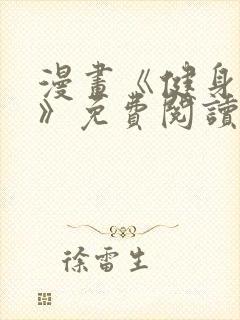 漫畫《健身
》免費閱讀
徐雷生